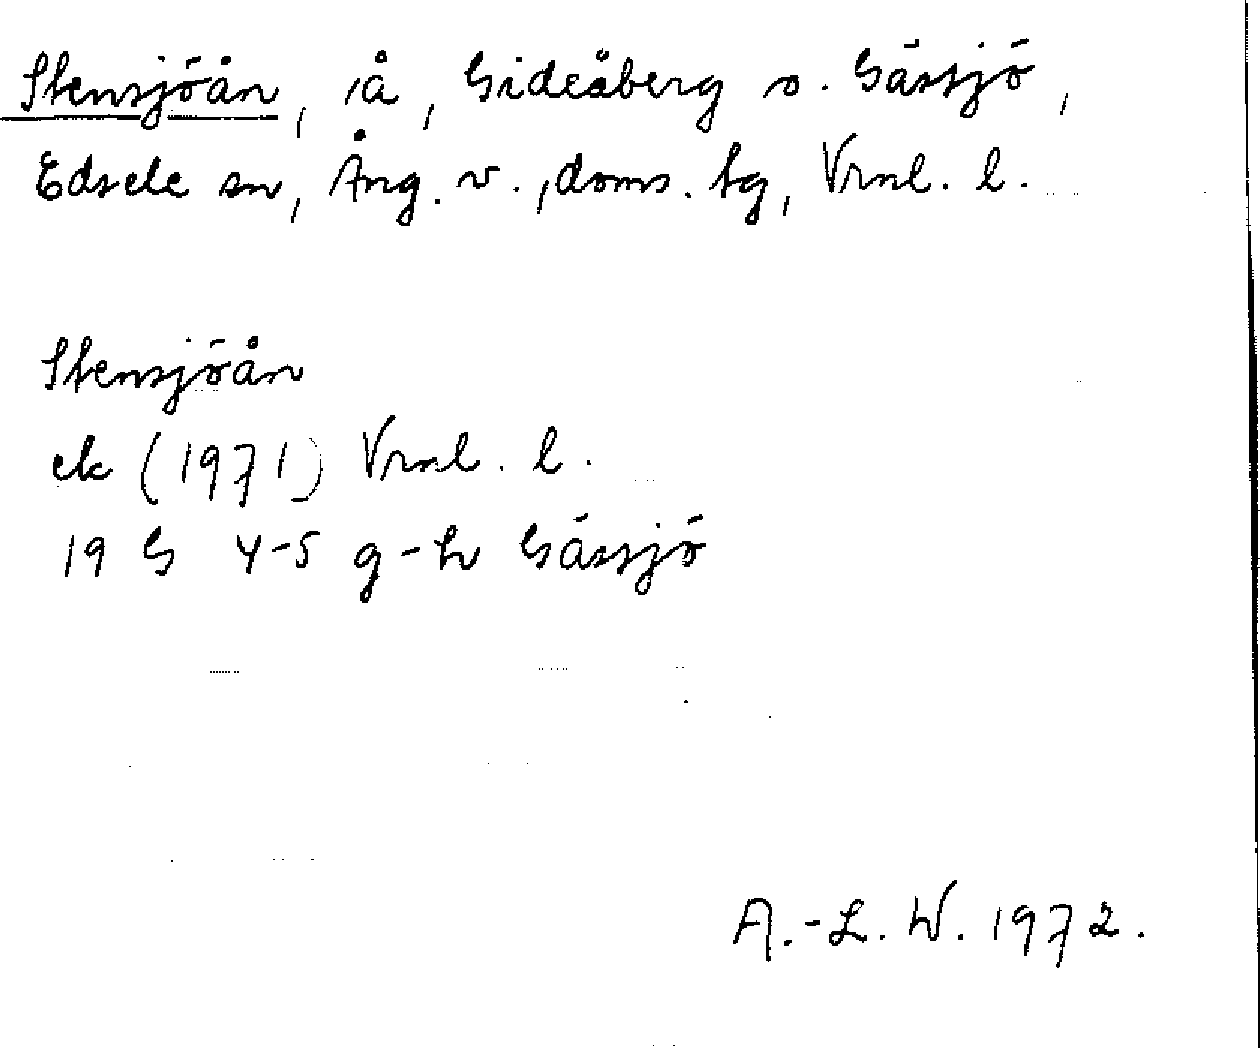 Stensjöån, å, Gideåberg o. Gässjö,
Edsele sn, Ång. v., doms. tg, Vrnl. l.
Stensjöån
ek (1971) Vrnl. l.
19 G 4-5 g-h Gässjö
A.-L. W. 1972.